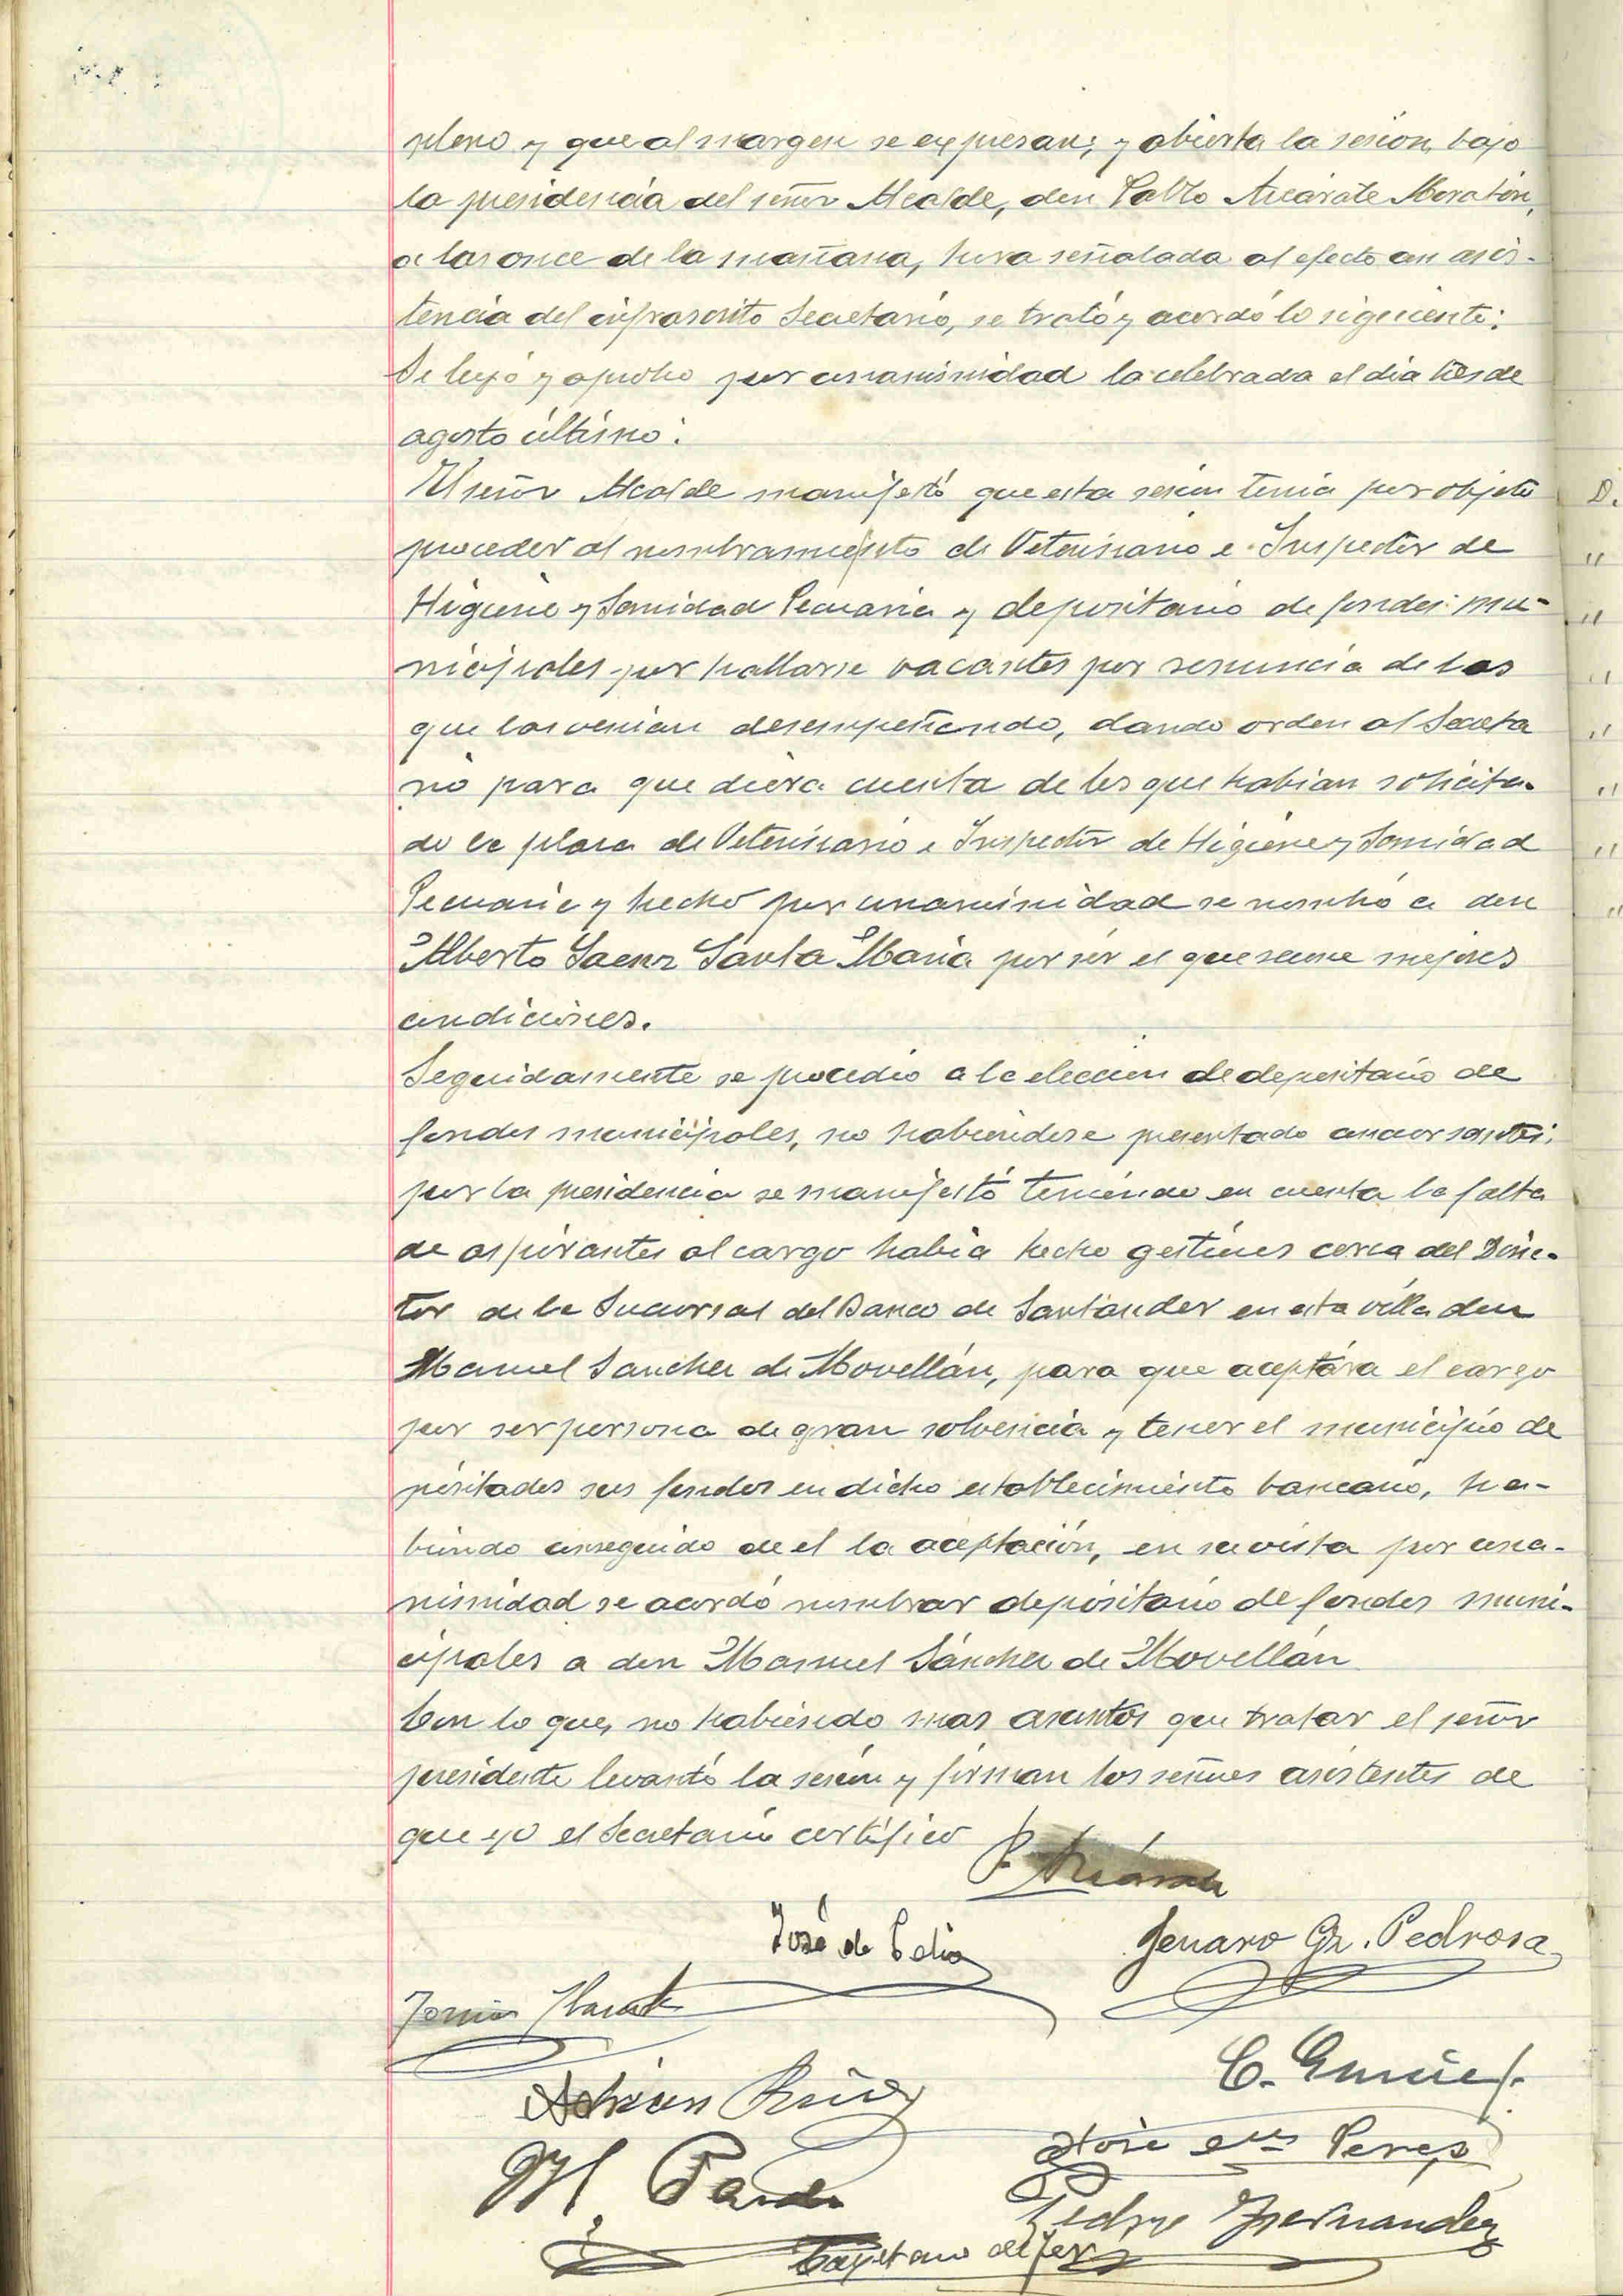 pleno y que al margen se expresan; y abierta la sesion, bajo
la presidencia del señor Alcalde, don Pablo Azcárate Moratón,
a las once de la mañana, hora señalada al efecto con asis-
tencia del infrascrito Secretario, se trató y acordó lo siguiente:
Se leyó y aprobó por unanimidad la celebrada el día tres de
agosto último.
El señor Alcalde manifestó que esta sesion tenia por objeto
proceder al nombramiento de Veterinario e Inspector de
Higiene y Sanidad Pecuaria y depositario de fondos mu-
nicipales por hallarse vacantes por renuncia de los
que los venian desempeñando, dando orden al Secreta
rio para que diera cuenta de los que habian solicita-
do la plaza de Veterinario e Inspector de Higiene y Sanidad
Pecuaria y hecho por unanimidad se nombró a don
Alberto Saenz Santa Maria por ser el que reune mejores
condiciones.
Seguidamente se procedió a la eleccion de depositario de
fondos municipales, no habiendose presentado concursantes;
por la presidencia se manifestó teniendo en cuenta la falta
de aspirantes al cargo habia hecho gestiones cerca del Direc-
tor de la Sucursal del Banco de Santander en esta villa don
Manuel Sanchez de Movellán, para que aceptára el cargo
por ser persona de gran solvencia y tener el municipio de
positados sus fondos en dicho establecimiento bancario, ha-
biendo conseguido de el la aceptación, en su vista por una-
nimidad se acordó nombrar depositario de fondos muni-
cipales a don Manuel Sánchez de Movellán
Con lo que, no habiendo mas asuntos que tratar el señor
presidente levantó la sesion y firman los señores asistentes de
que yo el Secretario certifico
P. Azcárate
José de Celis
Genaro Gz. Pedrosa
Adrian Ruiz
José Perez
M. Pardo
Pedro Hernandez
Cayetano
D.
"
"
"
"
"
"
"